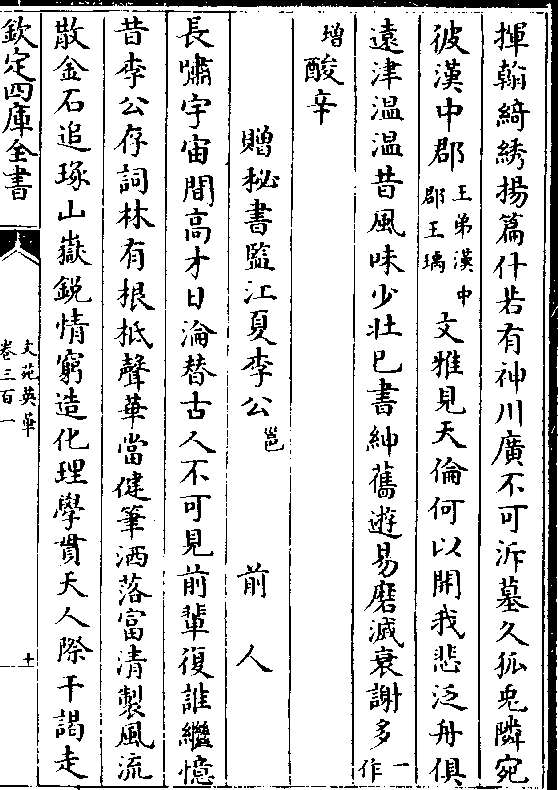 揮翰綺綉揚篇什若有神川廣不可泝墓久狐兎隣宛
彼漢中郡王弟漢中郡王瑀文雅見天倫何以開我悲泛舟俱
遠津温温昔風味少壯已書紳舊遊易磨滅衰謝多一作
増酸辛
贈秘書監江夏李公邕　前人
長嘯宇宙間高才日淪替古人不可見前輩復誰繼憶
昔李公存詞林有根柢聲華當健筆洒落富清製風流
散金石追琢山嶽鋭情窮造化理學貫天人際干謁走
欽定四庫全書
文苑英華
卷三百一
十